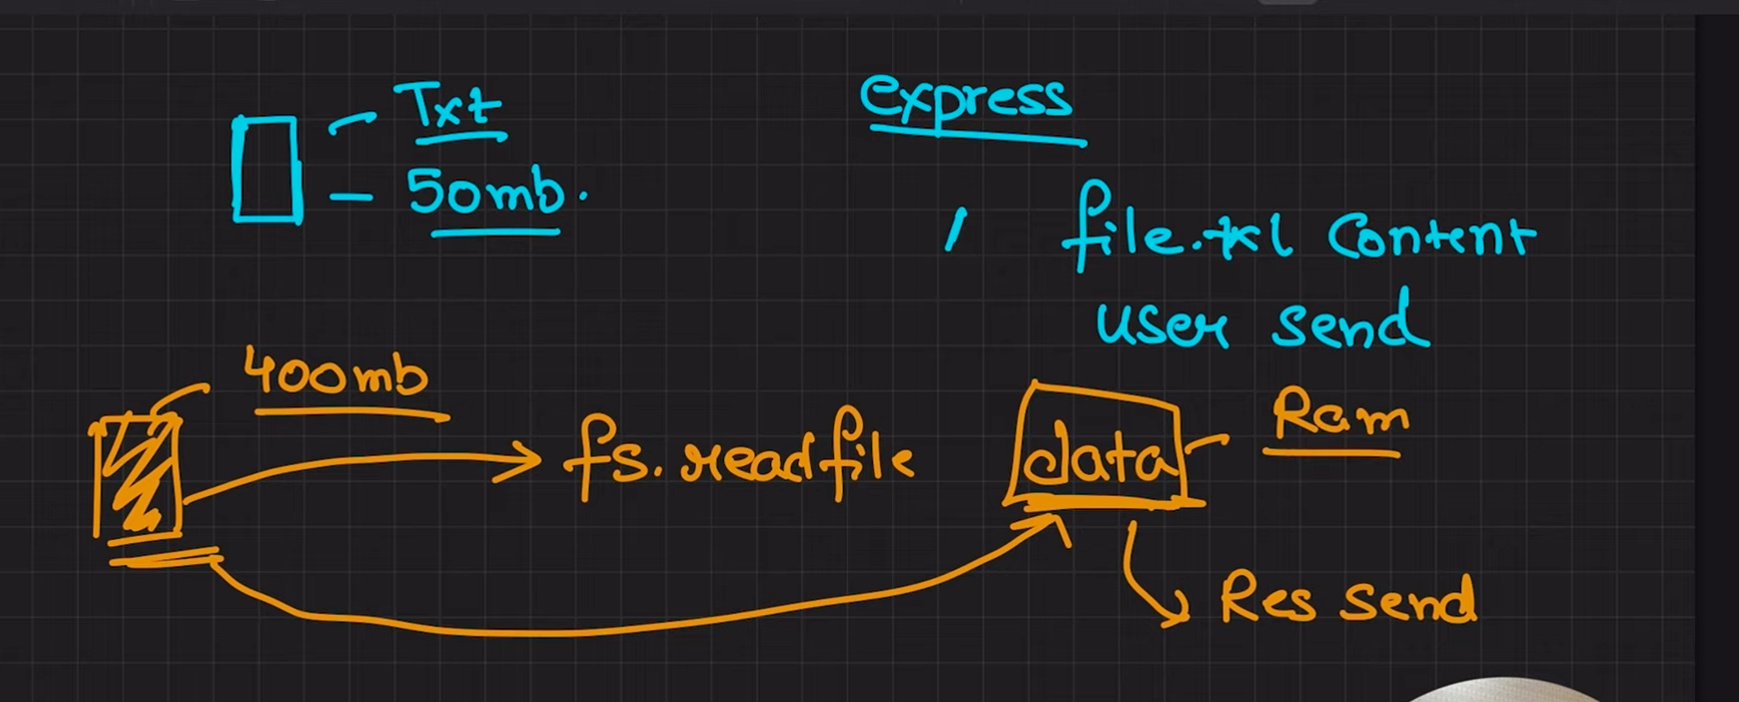 Txt
50mb.
express
/ file.txt Content
user send
400mb
fs.readfile
data
Ram
Res send